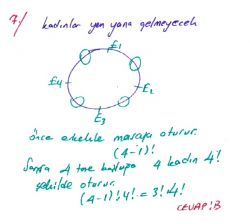 7/ kadınlar yan yana gelmeyecek
E1
E4
E2
E3
önce erkekler masaya oturur.
(4-1)!
Sonra 4 tane boşluğa 4 kadın 4!
şekilde oturur.
(4-1)! 4! = 3! 4!
CEVAP: B